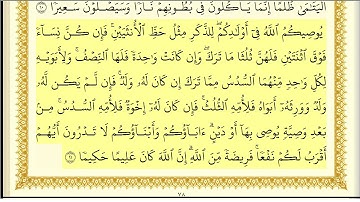 ٱلۡيَتَٰمَىٰ ظُلۡمًا إِنَّمَا يَأۡكُلُونَ فِي بُطُونِهِمۡ نَارٗاۖ وَسَيَصۡلَوۡنَ سَعِيرٗا ١٠
يُوصِيكُمُ ٱللَّهُ فِيٓ أَوۡلَٰدِكُمۡۖ لِلذَّكَرِ مِثۡلُ حَظِّ ٱلۡأُنثَيَيۡنِۚ فَإِن كُنَّ نِسَآءٗ
فَوۡقَ ٱثۡنَتَيۡنِ فَلَهُنَّ ثُلُثَا مَا تَرَكَۖ وَإِن كَانَتۡ وَٰحِدَةٗ فَلَهَا ٱلنِّصۡفُۚ وَلِأَبَوَيۡهِ
لِكُلِّ وَٰحِدٖ مِّنۡهُمَا ٱلسُّدُسُ مِمَّا تَرَكَ إِن كَانَ لَهُۥ وَلَدٞۚ فَإِن لَّمۡ يَكُن لَّهُۥ
وَلَدٞ وَوَرِثَهُۥٓ أَبَوَاهُ فَلِأُمِّهِ ٱلثُّلُثُۚ فَإِن كَانَ لَهُۥٓ إِخۡوَةٞ فَلِأُمِّهِ ٱلسُّدُسُۚ مِنۢ
بَعۡدِ وَصِيَّةٖ يُوصِي بِهَآ أَوۡ دَيۡنٍۗ ءَابَآؤُكُمۡ وَأَبۡنَآؤُكُمۡ لَا تَدۡرُونَ أَيُّهُمۡ
أَقۡرَبُ لَكُمۡ نَفۡعٗاۚ فَرِيضَةٗ مِّنَ ٱللَّهِۗ إِنَّ ٱللَّهَ كَانَ عَلِيمًا حَكِيمٗا ١١
٧٨